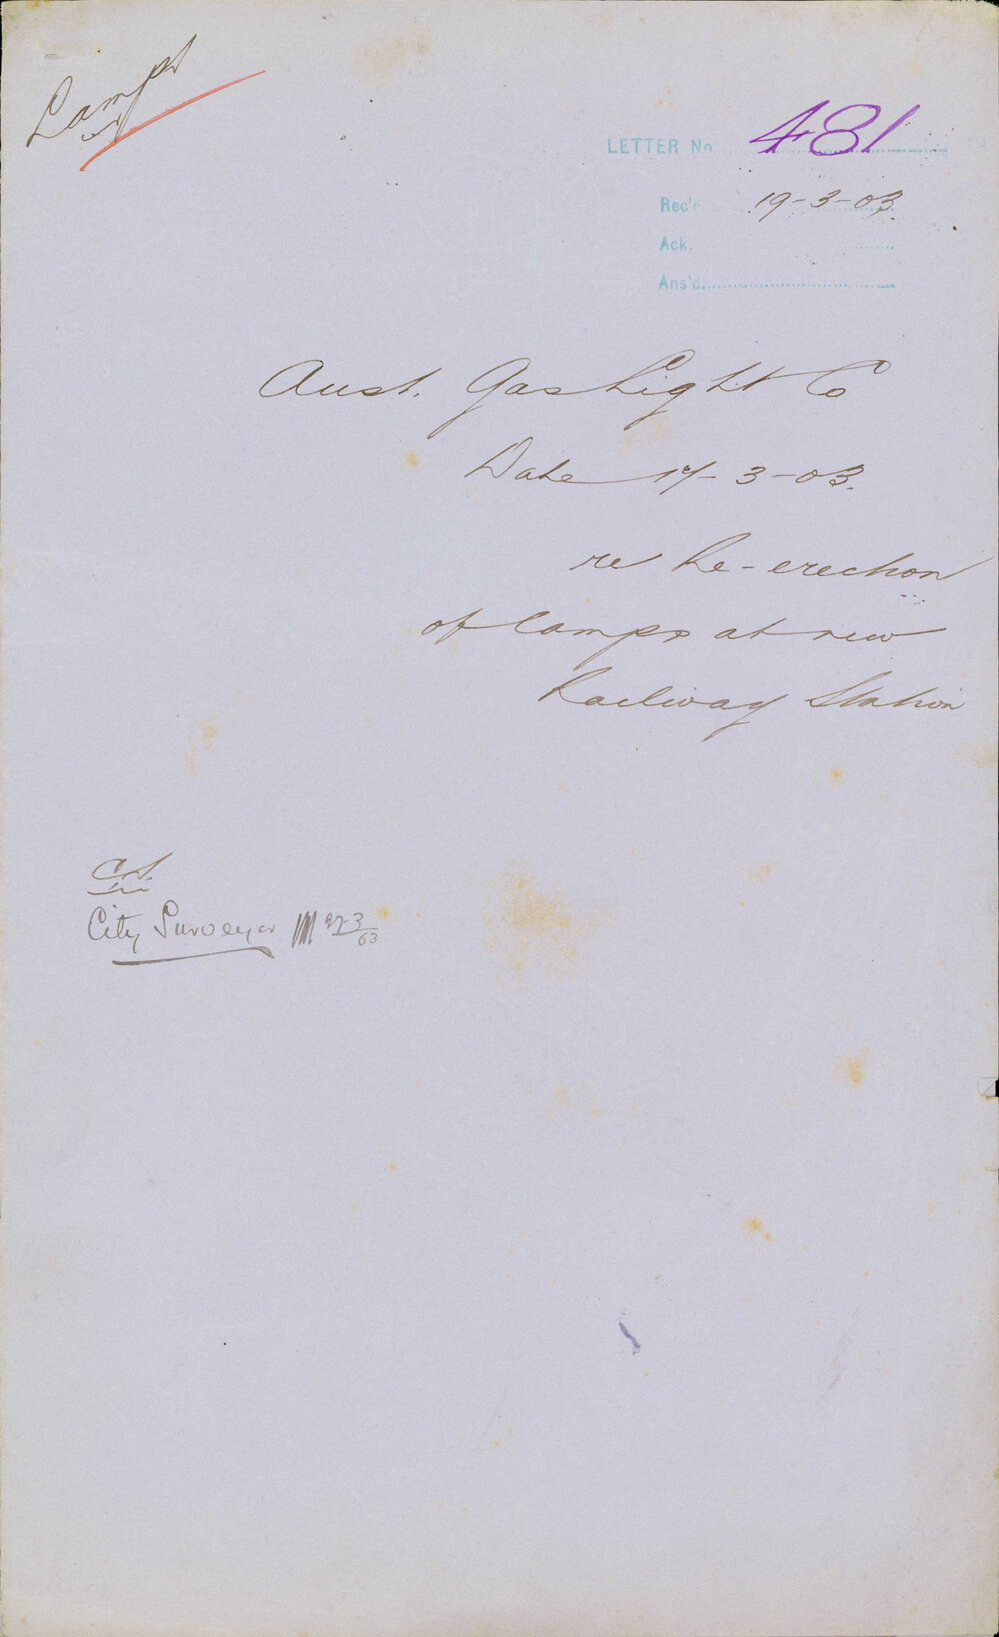 Lamps
LETTER No 481
Rec'd 19-3-03
Ack.
Ans'd
Aust. Gas Light Co
Date 17-3-03.
re Re-erection
of lamps at new
Railway Station
C.S.
City Surveyor